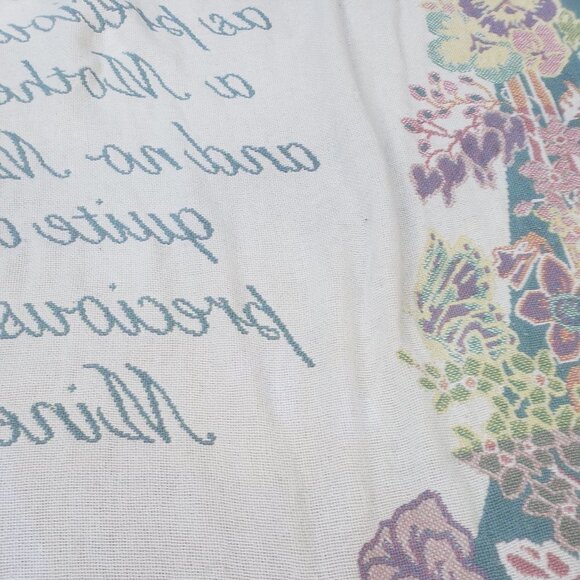 as precious
a Mothe
and no M
quite a
precious
Mine